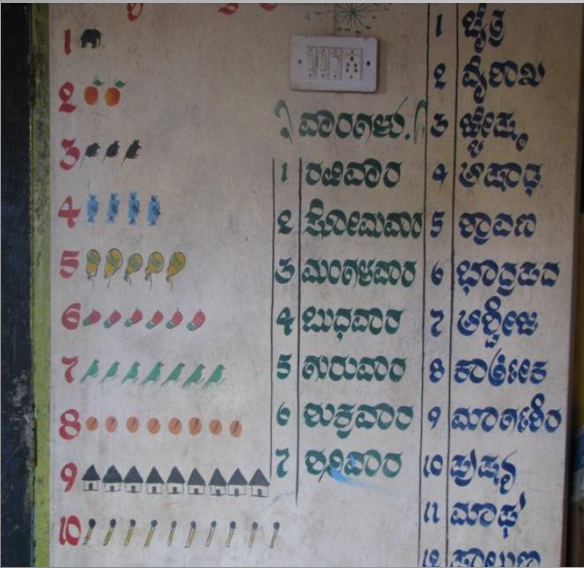 1
2
3
4
5
6
7
8
9
10
ವಾರಗಳು.
1 ರವಿವಾರ
2 ಸೋಮವಾರ
3 ಮಂಗಳವಾರ
4 ಬುಧವಾರ
5 ಗುರುವಾರ
6 ಶುಕ್ರವಾರ
7 ಶನಿವಾರ
1 ಚೈತ್ರ
2 ವೈಶಾಖ
3 ಜ್ಯೇಷ್ಠ
4 ಆಷಾಢ
5 ಶ್ರಾವಣ
6 ಭಾದ್ರಪದ
7
8 ಕಾರ್ತಿಕ
9 ಮಾರ್ಗಶಿರ
10 ಪುಷ್ಯ
11 ಮಾಘ
12